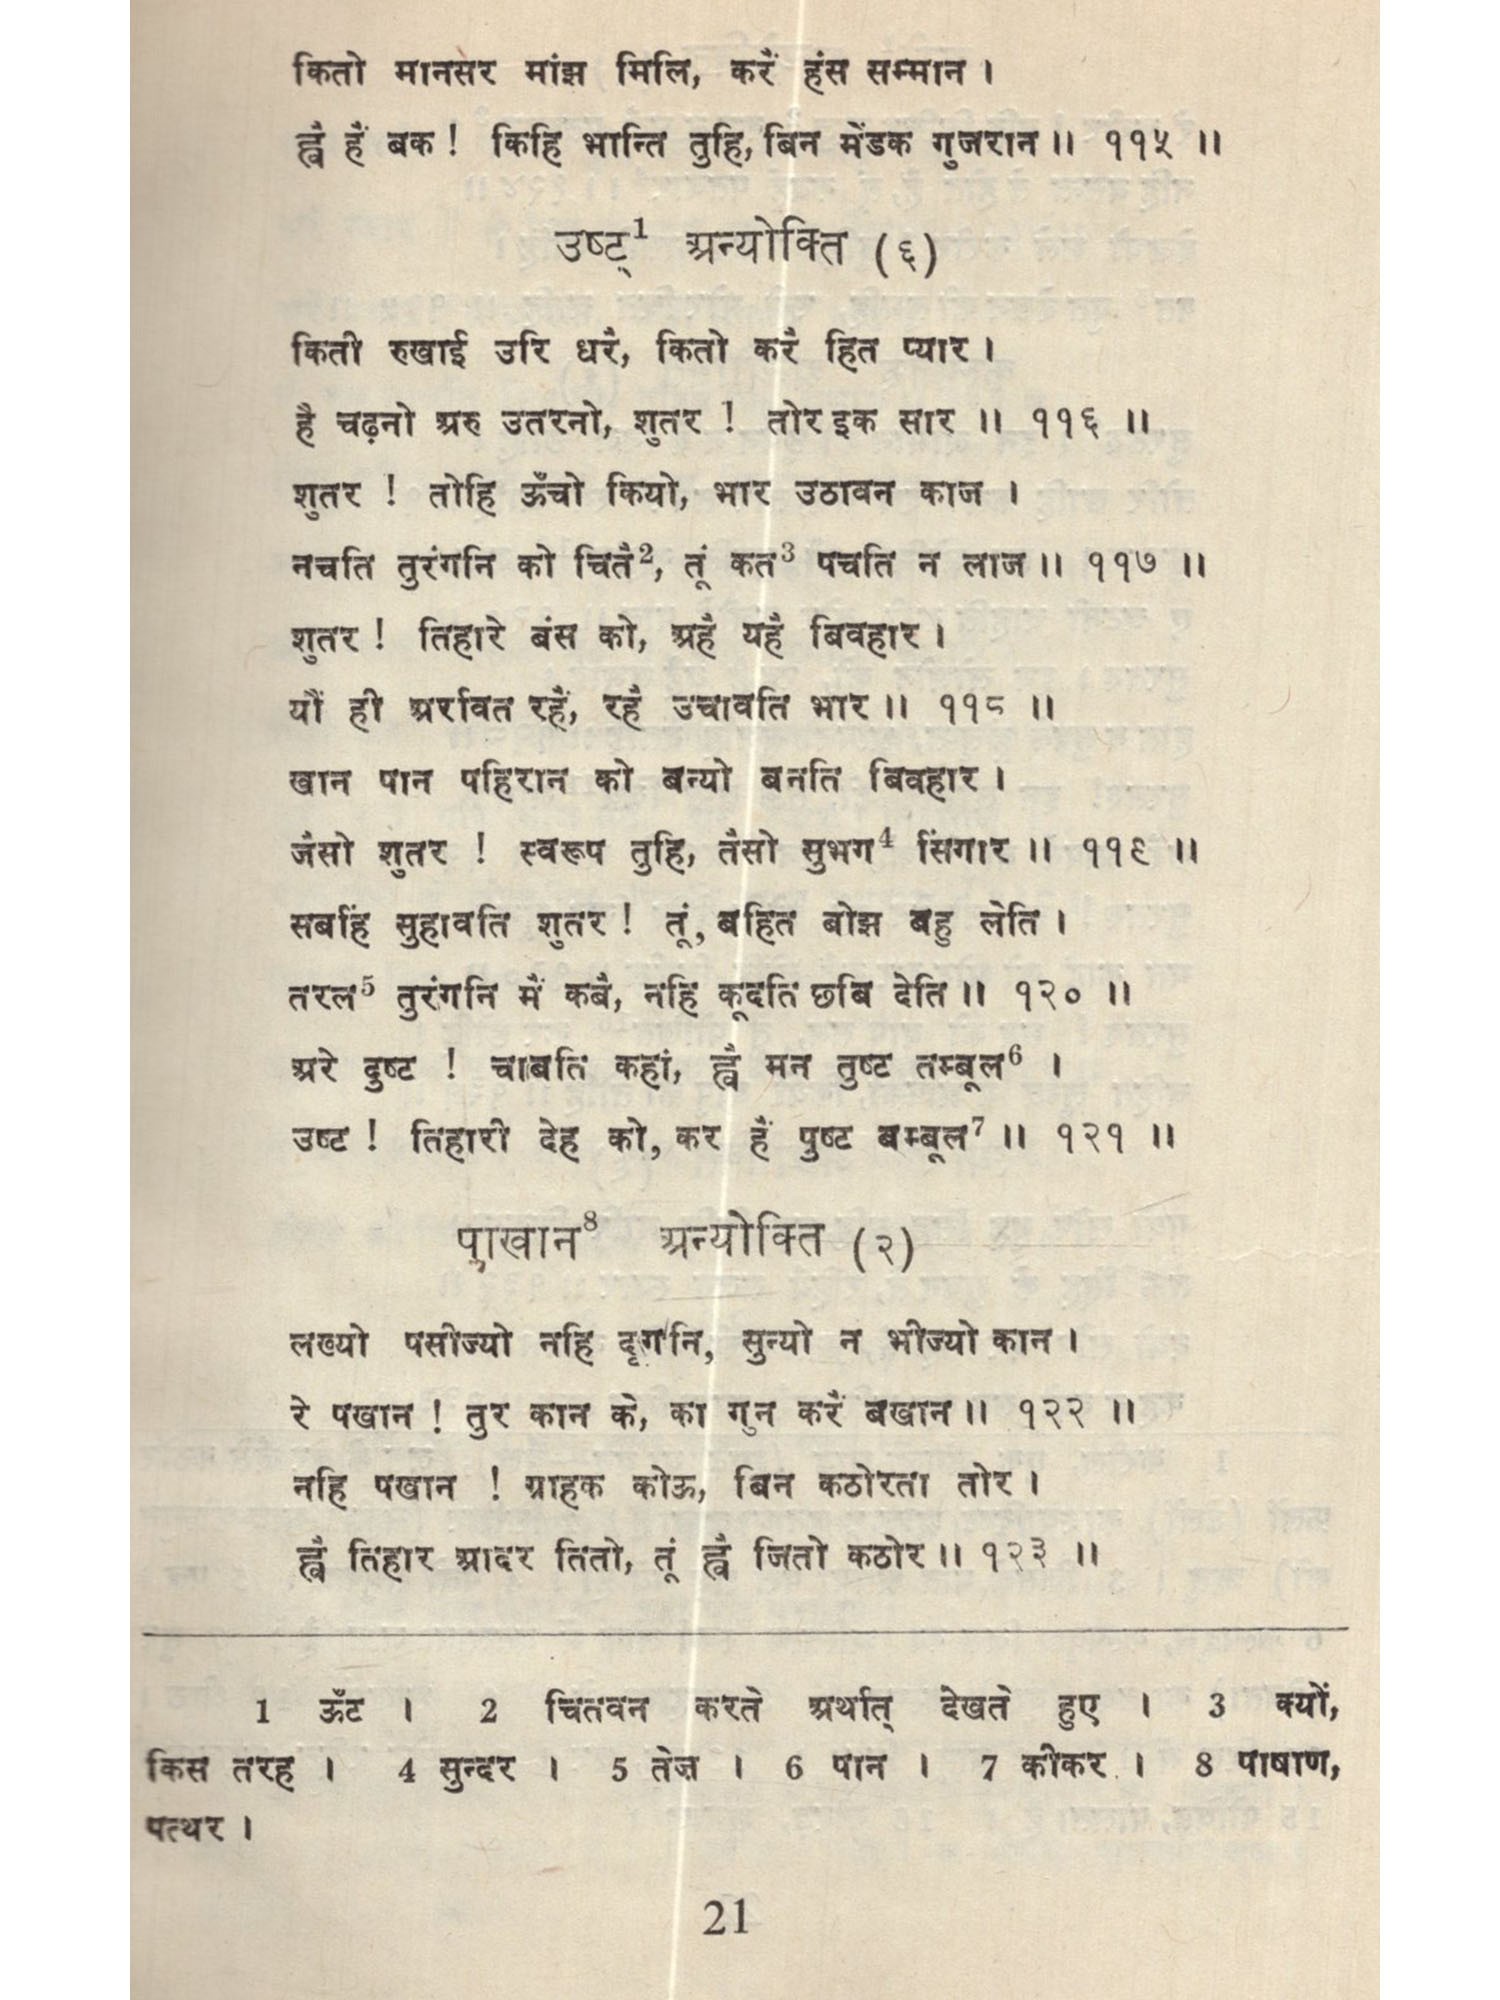 कितो मानसर मांझ मिलि, करैं हंस सम्मान ।
ह्वै हैं बक ! किहि भान्ति तुहि, बिन मेंडक गुजरान ।। ११५ ।।
उष्ट्र¹ अन्योक्ति (६)
किती रुखाई उरि धरैं, कितो करैं हित प्यार ।
है चढ़नो अरु उतरनो, शुतर ! तोर इक सार ।। ११६ ।।
शुतर ! तोहि ऊँचो कियो, भार उठावन काज ।
नचति तुरंगनि को चितै², तूं कत³ पचति न लाज ।। ११७ ।।
शुतर ! तिहारे बंस को, अहै यहै बिवहार ।
यौं ही अर्रावत रहैं, रहैं उचावति भार ।। ११८ ।।
खान पान पहिरान को बन्यो बनति बिवहार ।
जैसो शुतर ! स्वरूप तुहि, तैसो सुभग⁴ सिंगार ।। ११९ ।।
सबहिं सुहावति शुतर ! तूं, बहित बोझ बहु लेति ।
तरल⁵ तुरंगनि मैं कबै, नहि कूदति छबि देति ।। १२० ।।
अरे दुष्ट ! चाबति कहां, ह्वै मन तुष्ट तम्बूल⁶ ।
उष्ट ! तिहारी देह को, कर हैं पुष्ट बम्बूल⁷ ।। १२१ ।।
पाखान⁸ अन्योक्ति (२)
लख्यो पसीज्यो नहि दृगनि, सुन्यो न भीज्यो कान ।
रे पखान ! तुर कान के, का गुन करैं बखान ।। १२२ ।।
नहि पखान ! ग्राहक कोऊ, बिन कठोरता तोर ।
ह्वै तिहार आदर तितो, तूं ह्वै जितो कठोर ।। १२३ ।।
1 ऊँट । 2 चितवन करते अर्थात् देखते हुए । 3 क्यों,
किस तरह । 4 सुन्दर । 5 तेज़ । 6 पान । 7 कीकर । 8 पाषाण,
पत्थर ।
21